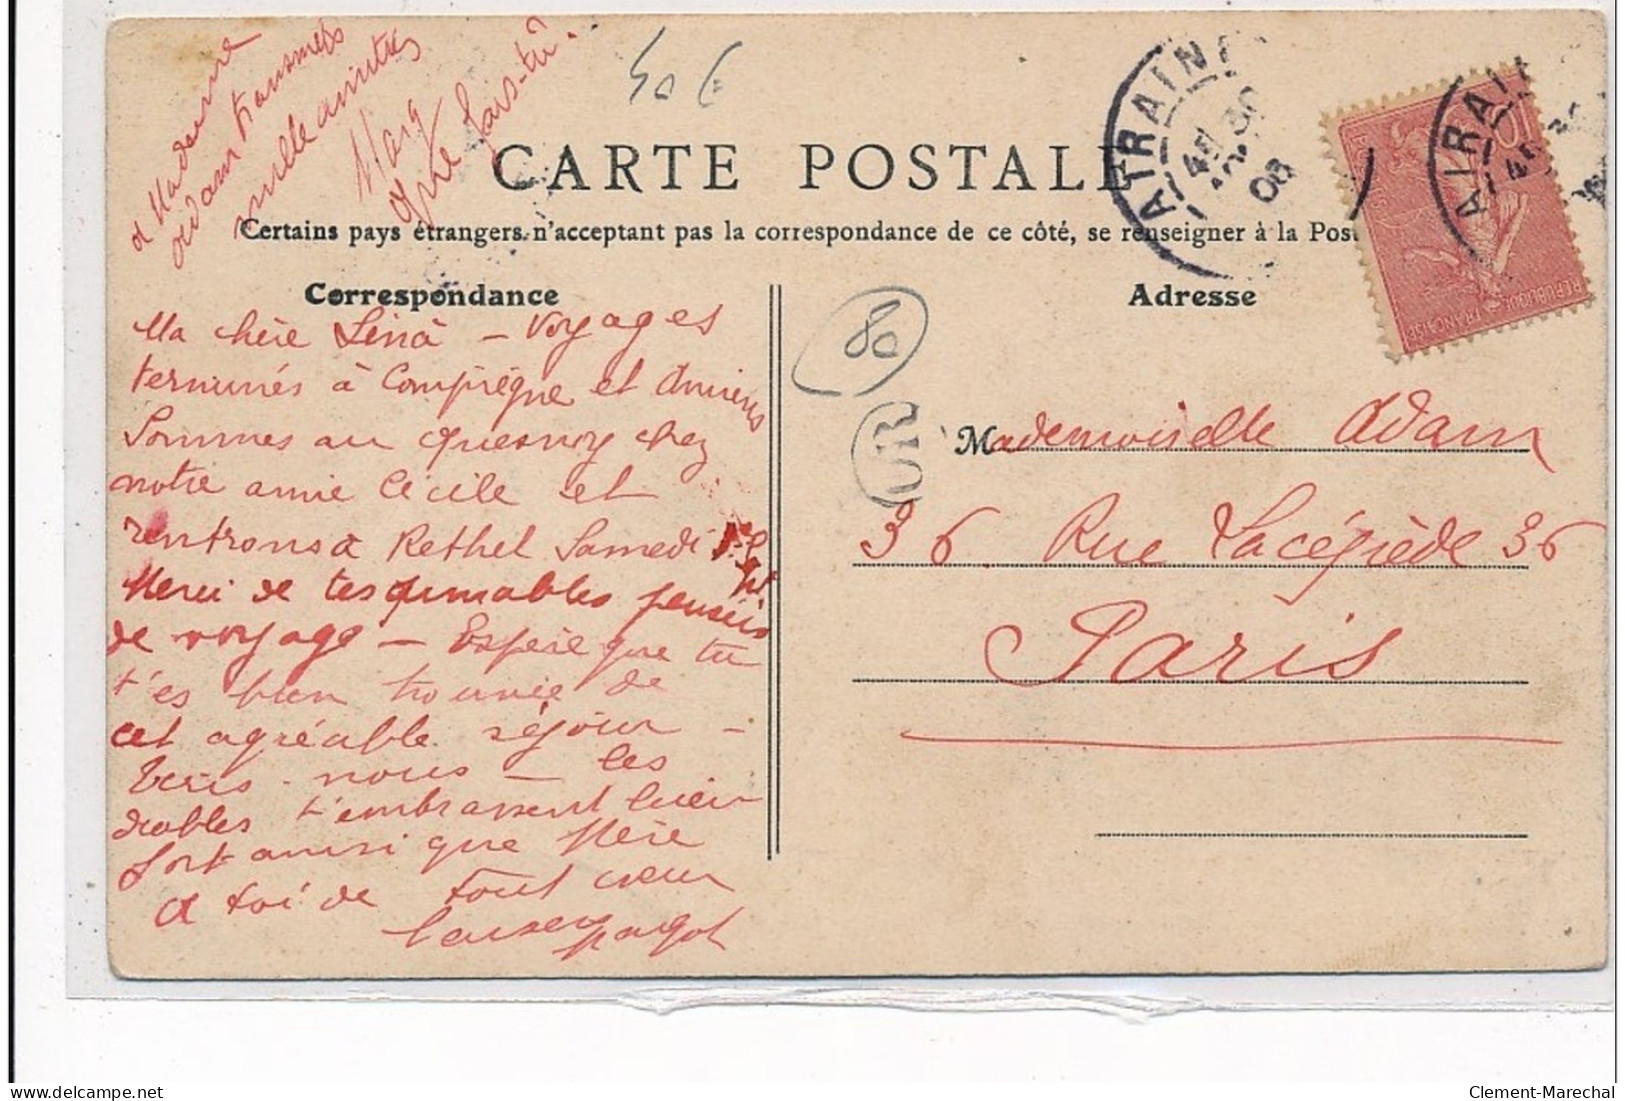 et Madame
Adam transmets
mille amitiés
Marg
Que fais-tu?
40 €
CARTE POSTALE
Certains pays étrangers n'acceptant pas la correspondance de ce côté, se renseigner à la Post
Correspondance
Adresse
Ma chère Léna - Voyages
terminés à Compiègne et Amiens
Sommes au Quesnoy chez
notre amie Cécile et
rentrons à Rethel Samedi
Merci de tes aimables pensées
de voyage - Espère que tu
t'es bien trouvée de
cet agréable séjour -
Écris-nous - les
diables t'embrassent bien
fort ainsi que Mère
et toi de tout cœur
Marg
80
OR
Mademoiselle Adam
36 Rue Lacépède 36
Paris
ATRAIN
4E 30
08
10
REPUBLIQUE FRANÇAISE
ATRAIN
4E 30
Clement-Marechal